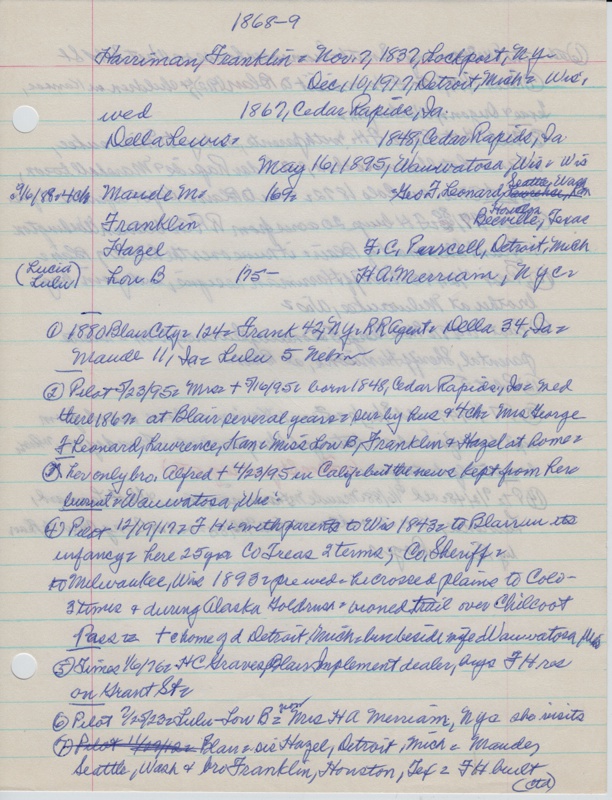 1868-9
Harriman, Franklin = Nov. 7, 1837, Lockport, N.Y.
Dec, 10, 1917, Detroit, Mich = Wis,
wed 1867, Cedar Rapids, Ia
Della Lewis = 1848, Cedar Rapids, Ia
May 16, 1895, Wauwatosa, Wis = Wis
Maude M = 169 = Geo F. Leonard, Seattle, Wash
Franklin Houston Beeville, Texas
Hazel F. C. Purscell, Detroit, Mich
(Lucia Lulu) Lou B 175- H A Merriam, N, Y, C =
① 1880 Blair City = 124 = Frank 42, N.Y = RR Agent = Della 34, Ia =
Maude 11, Ia = Lulu 5 Neb =
② Pilot 5/23/95 = Mrs = + 5/16/95 = born 1848, Cedar Rapids, Ia = wed
there 1867 = at Blair several years = sur by hus & 4 ch = Mrs George
F Leonard, Lawrence, Kan = Miss Lou B, Franklin & Hazel at home =
③ her only bro, Alfred + 4/23/95 in Calif but the news kept from her =
burial = Wauwatosa, Wis =
④ Pilot 12/19/17 = F H = with parents to Wis 1843 = to Blair in its
infancy = here 25 yrs Co Treas 2 terms; Co, Sheriff =
to Milwaukee, Wis 1893 = pre wed = he crossed plains to Colo -
3 times & during Alaska Goldrush = trail over Chilcoot
Pass = + home of d Detroit, Mich = bur beside wife Wauwatosa, Wis
⑤ Times 1/6/76 = H C Graves, Blair Implement dealer, buys F H res
on Grant St =
⑥ Pilot 7/25/23 = Lulu - Lou B = now Mrs H A Merriam, NYC she visits
⑦ Blair = sis Hazel, Detroit, Mich = Maude,
Seattle, Wash & bro Franklin, Houston, Tex = F H built
(ctd)